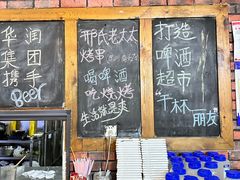 华润
集团
携手
Beer
邢氏老太太
烤串
喝啤酒
吃烧烤
生活就是爽
打造
啤酒
超市
"干杯__朋友"